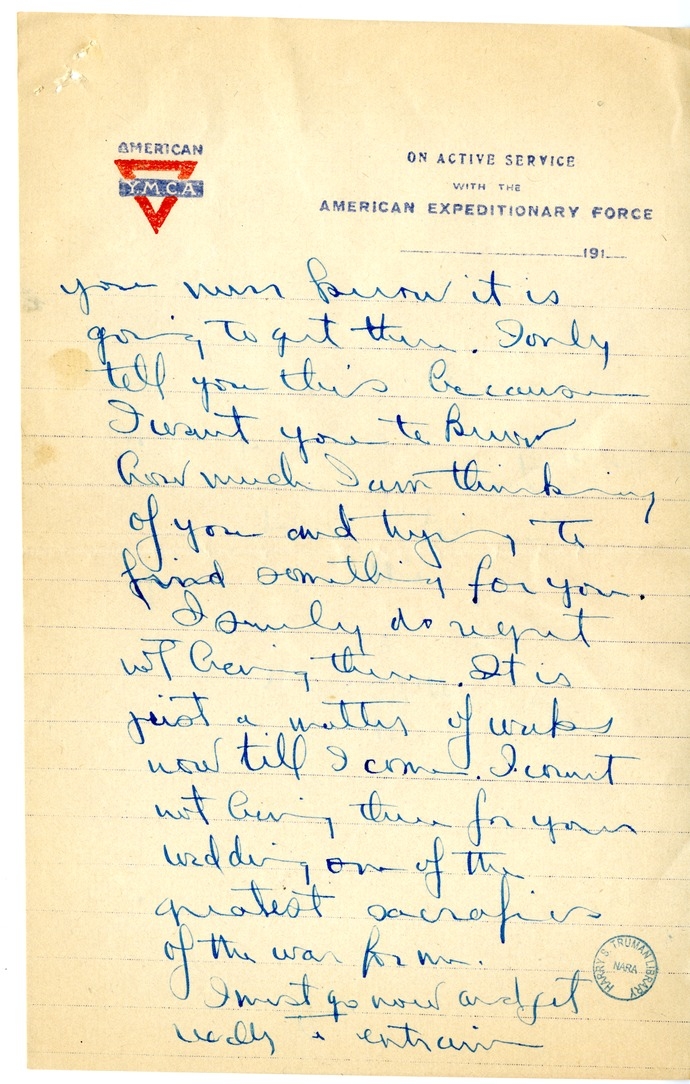 AMERICAN
Y.M.C.A.
ON ACTIVE SERVICE
WITH THE
AMERICAN EXPEDITIONARY FORCE
191
you never know it is
going to get there. I only
tell you this because
I want you to know
how much I am thinking
of you and trying to
find something for you.
I surely do regret
not being there. It is
just a matter of weeks
now till I come. I count
not being there for your
wedding one of the
greatest sacrafices
of the war for me.
I must go now and get
ready to entrain
HARRY S. TRUMAN LIBRARY
NARA